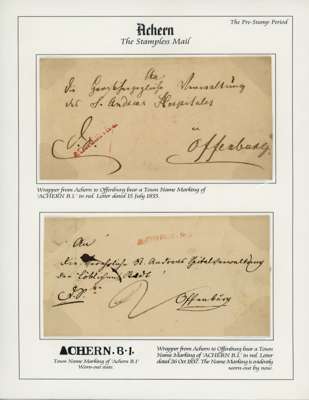 The Pre-Stamp Period
Achern
The Stampless Mail
An
die Großherzogliche Verwaltung
des St. Andreas Hospitales
Offenburg
Wrapper from Achern to Offenburg bear a Town Name Marking of
'ACHERN B.1.' in red. Letter dated 15 July 1835.
An
die St. Andreas Spitalverwaltung
der Löblichen Stadt
Offenburg
ACHERN. B·1.
Town Name Marking of 'Achern B.1'
Worn-out state.
Wrapper from Achern to Offenburg bear a Town
Name Marking of 'ACHERN B.1.' in red. Letter
dated 26 Oct 1837. The Name Marking is evidently
worn-out by now.